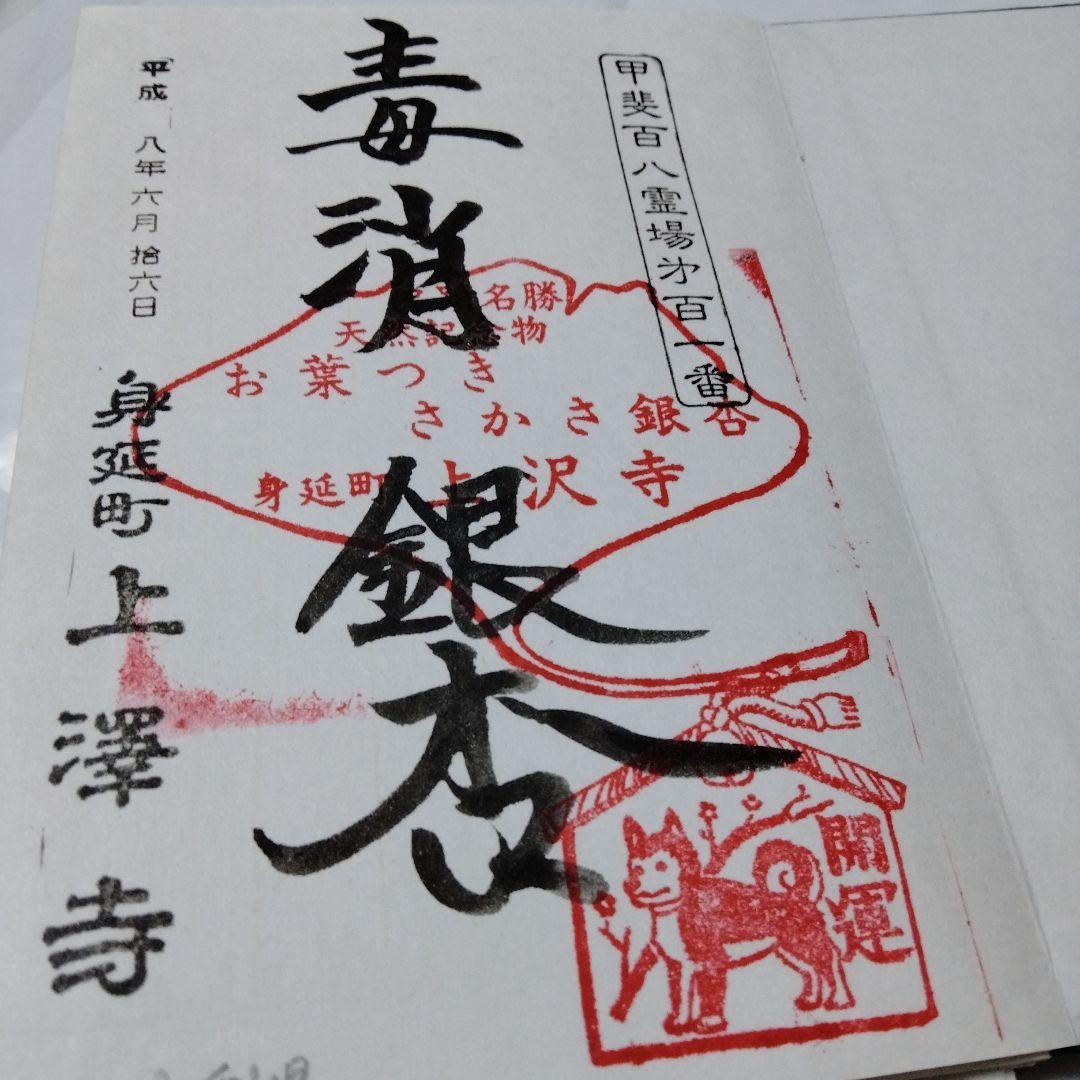 甲斐百八霊場第百一番
毒消
銀杏
名勝
天然記念物
お葉つき
さかさ銀杏
身延町 上沢寺
開運
平成 八年六月拾六日
身延町 上澤寺